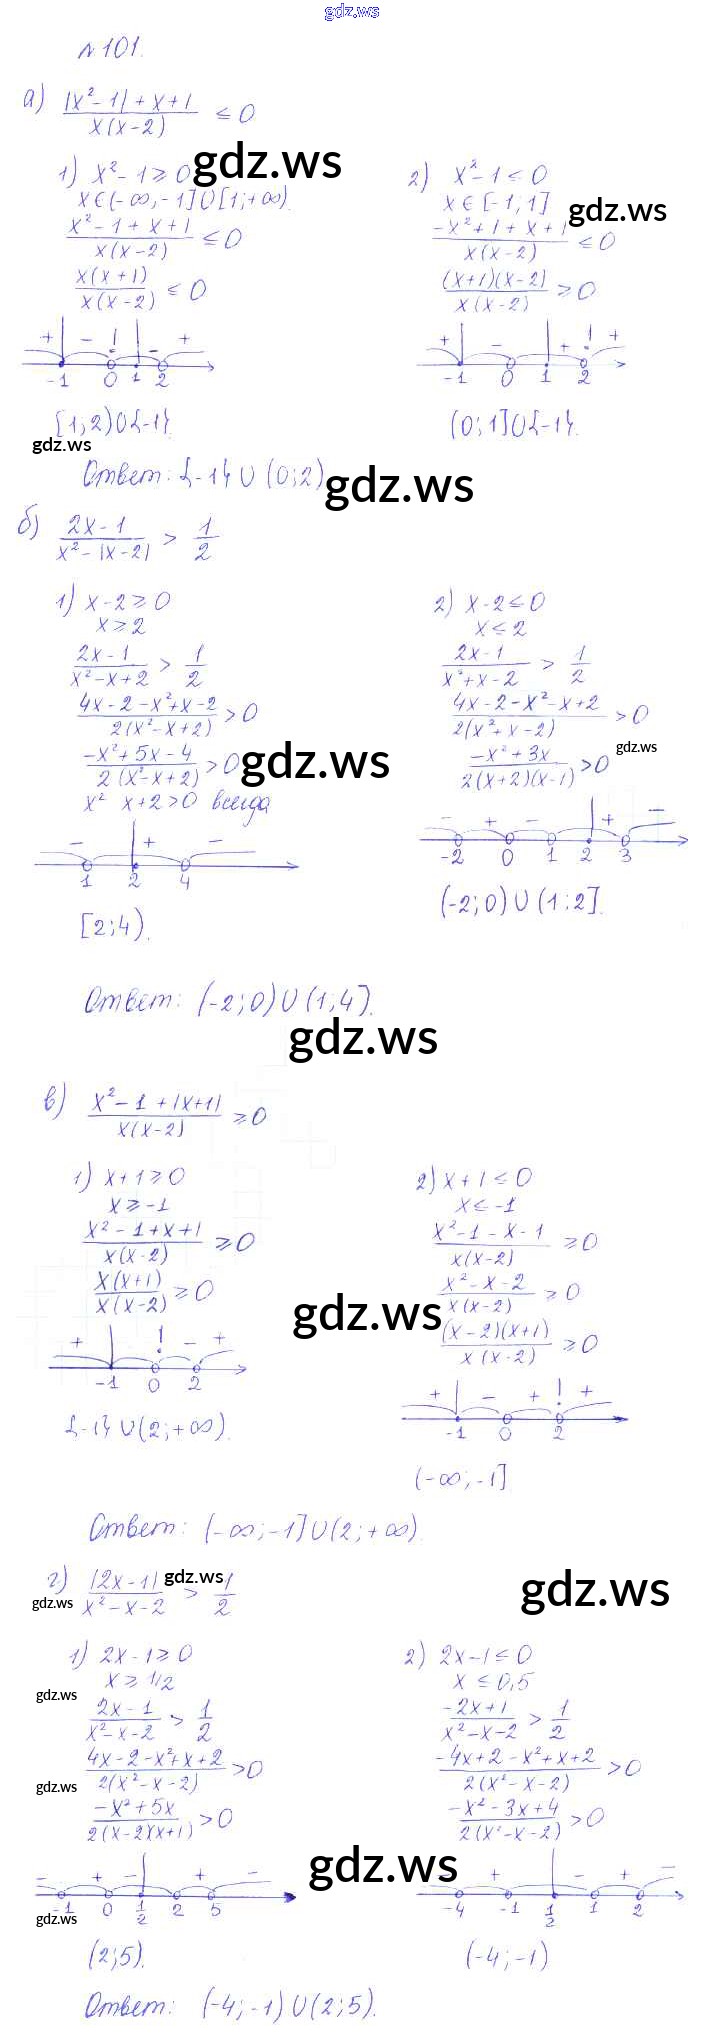 gdz.ws
№ 101.
а) (|x² - 1| + x + 1)/(x(x-2)) ≤ 0
1) x² - 1 ≥ 0
x ∈ (-∞, -1] ∪ [1; +∞).
(x² - 1 + x + 1)/(x(x-2)) ≤ 0
(x(x+1))/(x(x-2)) ≤ 0
+ - ! - +
-1 0 1 2
[1; 2) ∪ {-1}.
2) x² - 1 ≤ 0
x ∈ [-1, 1]
(-x² + 1 + x + 1)/(x(x-2)) ≤ 0
((x+1)(x-2))/(x(x-2)) ≥ 0
+ - + ! +
-1 0 1 2
(0; 1] ∪ {-1}.
gdz.ws
gdz.ws
gdz.ws
Ответ: {-1} ∪ (0; 2)
gdz.ws
б) (2x - 1)/(x² - |x - 2|) > 1/2
1) x - 2 ≥ 0
x ≥ 2
(2x - 1)/(x² - x + 2) > 1/2
(4x - 2 - x² + x - 2)/(2(x² - x + 2)) > 0
(-x² + 5x - 4)/(2(x² - x + 2)) > 0
x² x + 2 > 0 всегда
- + -
1 2 4
[2; 4).
2) x - 2 ≤ 0
x ≤ 2
(2x - 1)/(x² + x - 2) > 1/2
(4x - 2 - x² - x + 2)/(2(x² + x - 2)) > 0
(-x² + 3x)/(2(x+2)(x-1)) > 0
- + - + -
-2 0 1 2 3
(-2; 0) ∪ (1; 2].
gdz.ws
gdz.ws
Ответ: (-2; 0) ∪ (1; 4).
gdz.ws
в) (x² - 1 + |x+1|)/(x(x-2)) ≥ 0
1) x + 1 ≥ 0
x ≥ -1
(x² - 1 + x + 1)/(x(x-2)) ≥ 0
(x(x+1))/(x(x-2)) ≥ 0
+ ! - +
-1 0 2
{-1} ∪ (2; +∞).
2) x + 1 ≤ 0
x ≤ -1
(x² - 1 - x - 1)/(x(x-2)) ≥ 0
(x² - x - 2)/(x(x-2)) ≥ 0
((x-2)(x+1))/(x(x-2)) ≥ 0
+ - + ! +
-1 0 2
(-∞; -1]
gdz.ws
Ответ: (-∞; -1] ∪ (2; +∞).
г) |2x - 1|/(x² - x - 2) > 1/2
gdz.ws
gdz.ws
gdz.ws
1) 2x - 1 ≥ 0
x ≥ 1/2
(2x - 1)/(x² - x - 2) > 1/2
(4x - 2 - x² + x + 2)/(2(x² - x - 2)) > 0
(-x² + 5x)/(2(x-2)(x+1)) > 0
- + - + -
-1 0 1/2 2 5
(2; 5).
2) 2x - 1 ≤ 0
x ≤ 0,5
(-2x + 1)/(x² - x - 2) > 1/2
(-4x + 2 - x² + x + 2)/(2(x² - x - 2)) > 0
(-x² - 3x + 4)/(2(x² - x - 2)) > 0
- + - + -
-4 -1 1/2 1 2
(-4; -1)
gdz.ws
gdz.ws
gdz.ws
gdz.ws
Ответ: (-4; -1) ∪ (2; 5).